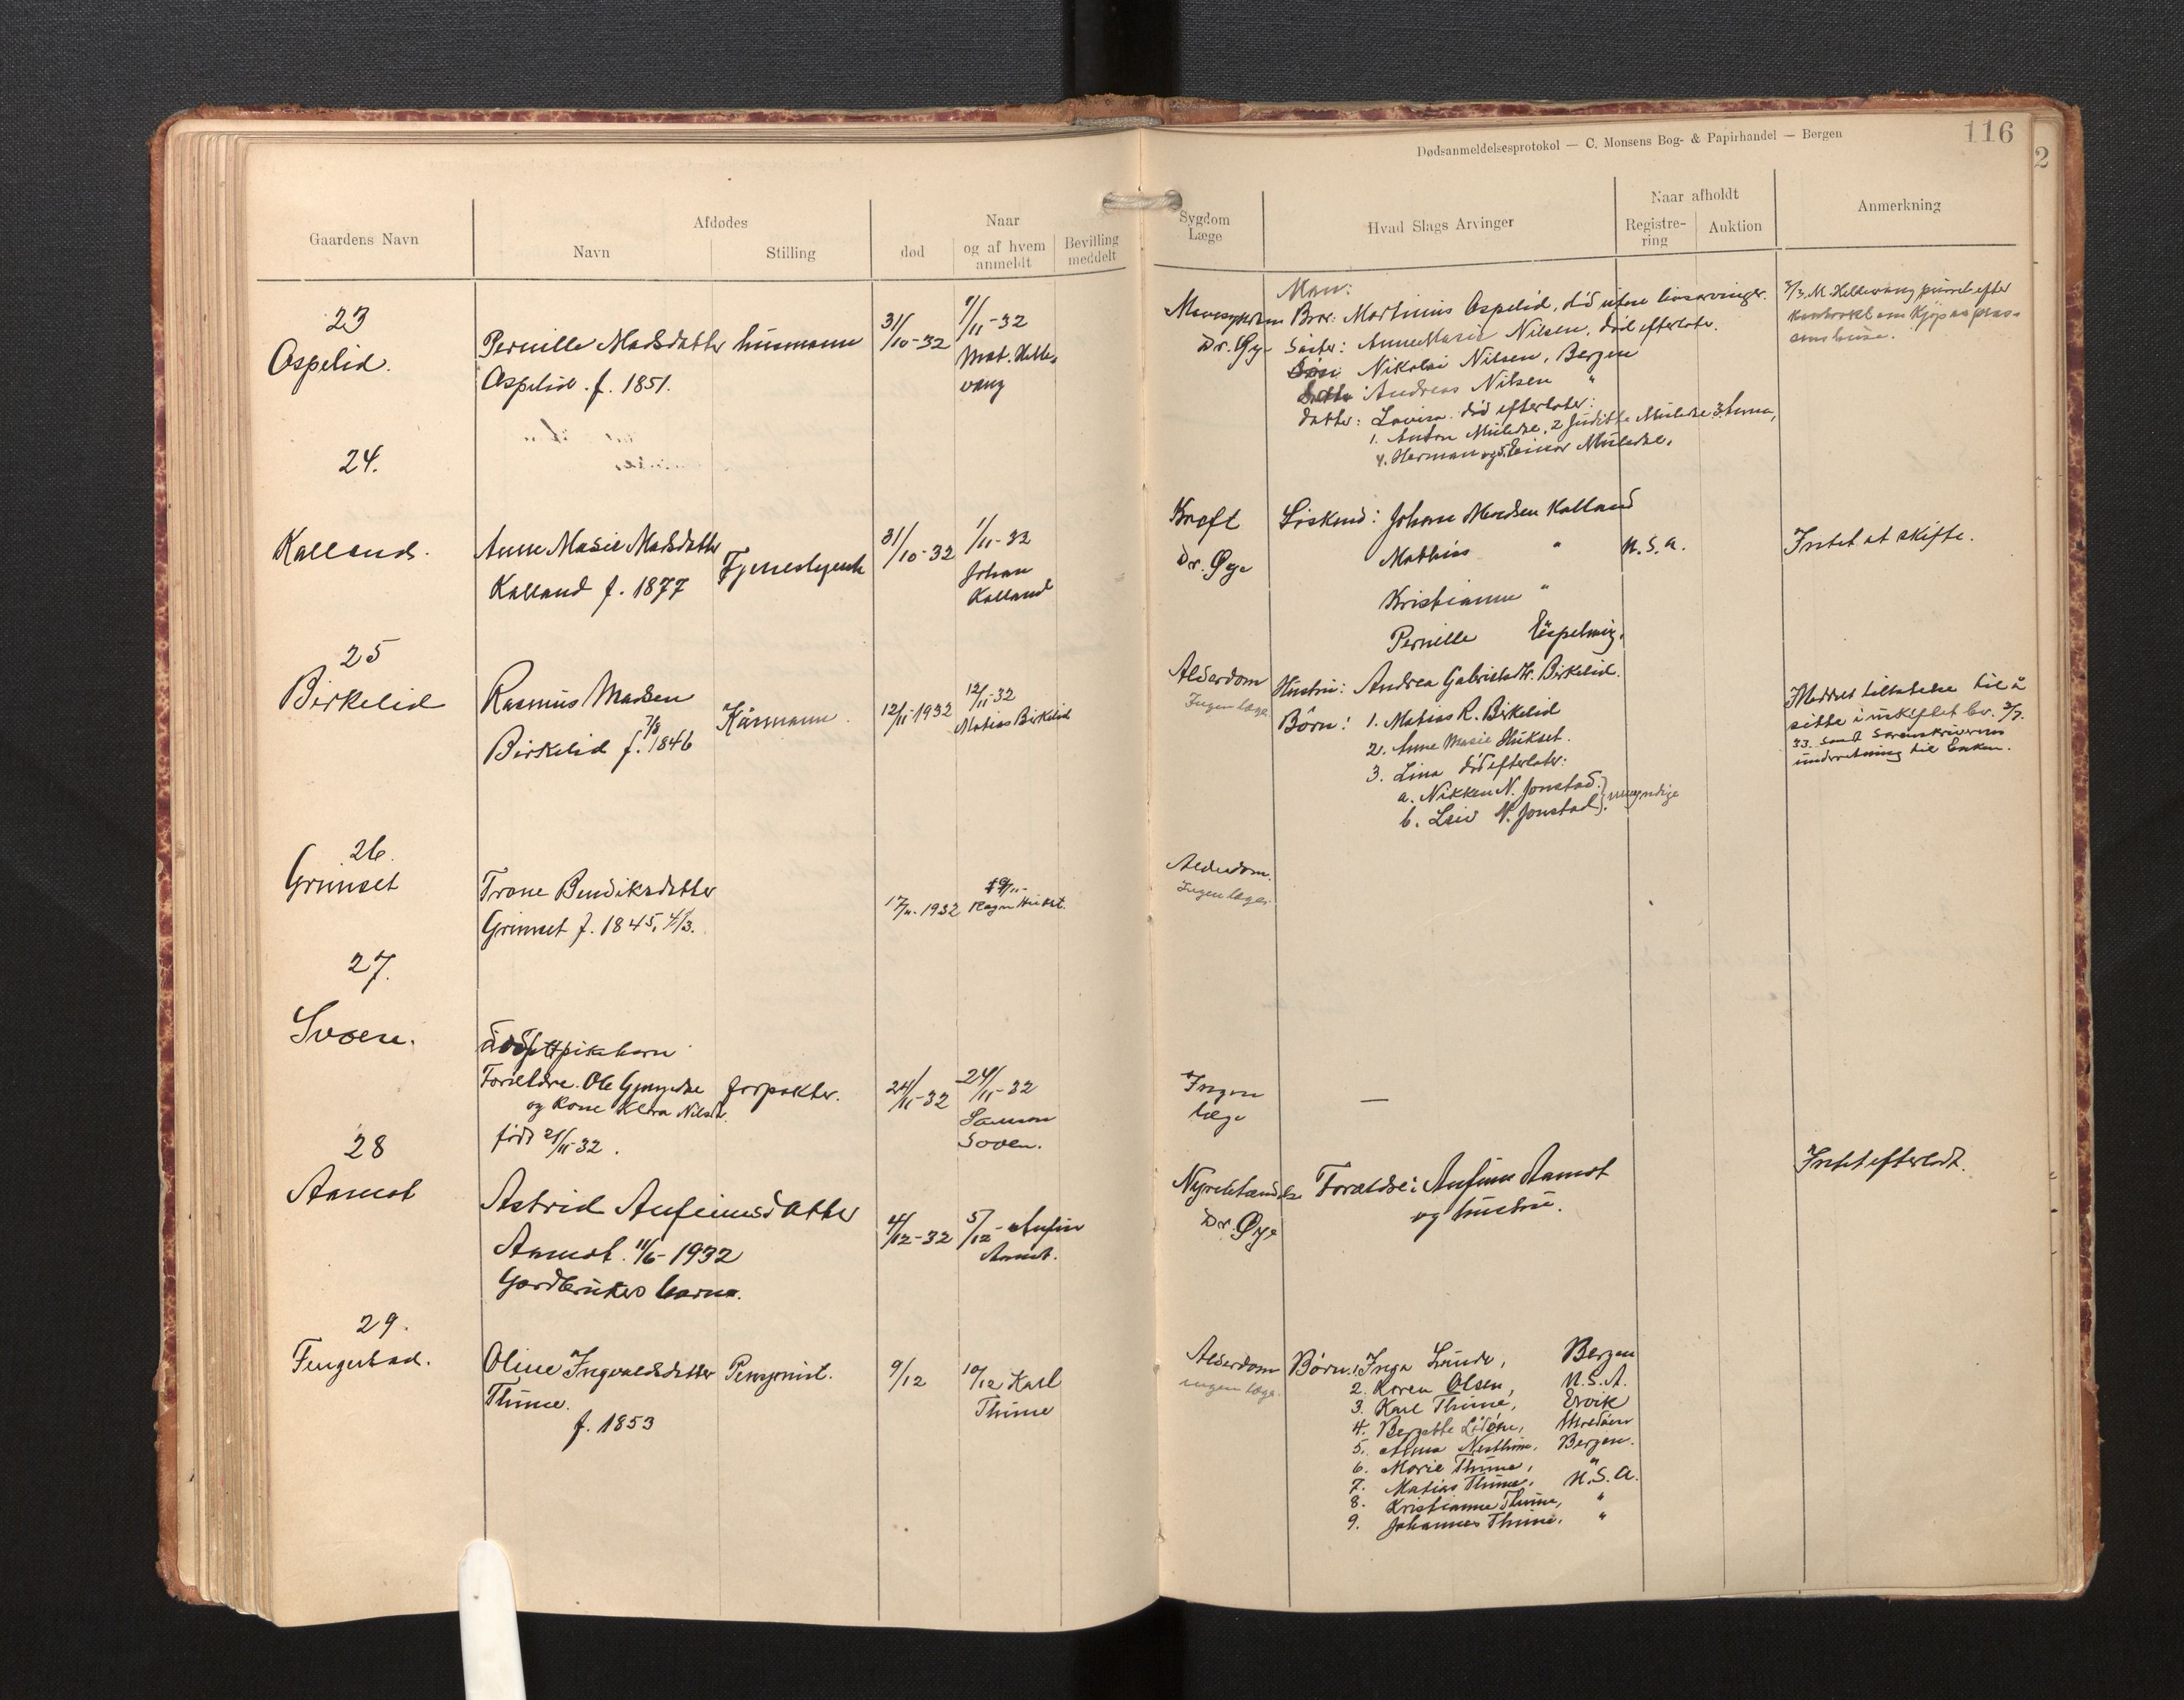 Dødsanmeldelsesprotokol — C. Monsens Bog- & Papirhandel — Bergen
116
2
Gaardens Navn
Afdødes
Navn
Stilling
Naar
død
og af hvem
anmeldt
Bevilling
meddelt
Sygdom
Læge
Hvad Slags Arvinger
Naar afholdt
Registre-
ring
Auktion
Anmerkning
23
Ospelid.
Pernille Madsdatter
Ospelid. f. 1851.
husmann
31/10-32
1/11-32
Mat. Helle-
vang
Mavesygdom
Dr. Øye
Man:
Bror: Martinus Ospelid, død uten livsarvinger.
Søster: Anne Marie Nilsen, død efterlater.
Søn: Nikolai Nilsen, Bergen
Andreas Nilsen "
datter: Lovisa død efterlater:
1. Anton Mulelse, 2 Judithe Mulelse 3. Anna,
4. Herman og 5. Einar Mulelse.
M. Hellevang purret efter
24.
Kalland.
Anne Marie Madsdatter
Kalland f. 1877
Tjenestejente
31/10-32
1/11-32
Johan
Kalland
Kræft
Dr. Øye
Søskend: Johan Madsen Kalland
Mathias "
Kristianne "
Pernille Espelund.
U.S.A.
Intet at skifte.
25
Birkelid
Rasmus Madsen
Birkelid f. 7/8 1846
Kårmann.
12/11-1932
12/11-32
Matias Birkelid
Alderdom
Ingen læge
Hustru: Andrea Gabrielsdtr. Birkelid.
Børn: 1. Matias R. Birkelid
2. Anne Marie Hukset.
3. Lina død efterlater:
a. Nikken N. Jonstad.
b. Leiv N. Jonstad.
umyndige
Meddelt tillatelse til å
sitte i uskiftet bo. 3/7.
33. Sendt Sorenskriverens
underretning til Enken.
26.
Grimset
Trone Bendiksdatter
Grimset f. 1845, 4/3.
17/11.1932
Alderdom.
Ingen læge.
27.
Svoen.
udøpt pikebarn
Forældre. Ole
og Kone Klara
født 21/11-32.
forpakter.
24/11-32
24/11-32
Samson
Svoen.
Ingen
læge
—
28
Aamot
Astrid Anfinnsdatter
Aamot. 11/6-1932
Gardbrukers barn.
4/12-32
5/12 - Anfin
Aamot.
Nyrebetændelse
Dr. Øye
Forældre: Anfinn Aamot
og hustru.
Intet efterladt.
29.
Fengestad.
Oline Ingvaldsdatter
Thune.
f. 1853
Pensjonist.
9/12
10/12 Karl
Thune
Alderdom
ingen læge.
Børn: 1. Inga Lunde, Bergen
2. Karen Olsen, U.S.A.
3. Karl Thune, Ervik
4. Bergitte
5. Anna Bergen.
6. Marie Thune, "
7. Matias Thune, U.S.A.
8. Kristianna Thune, "
9. Johannes Thune. "